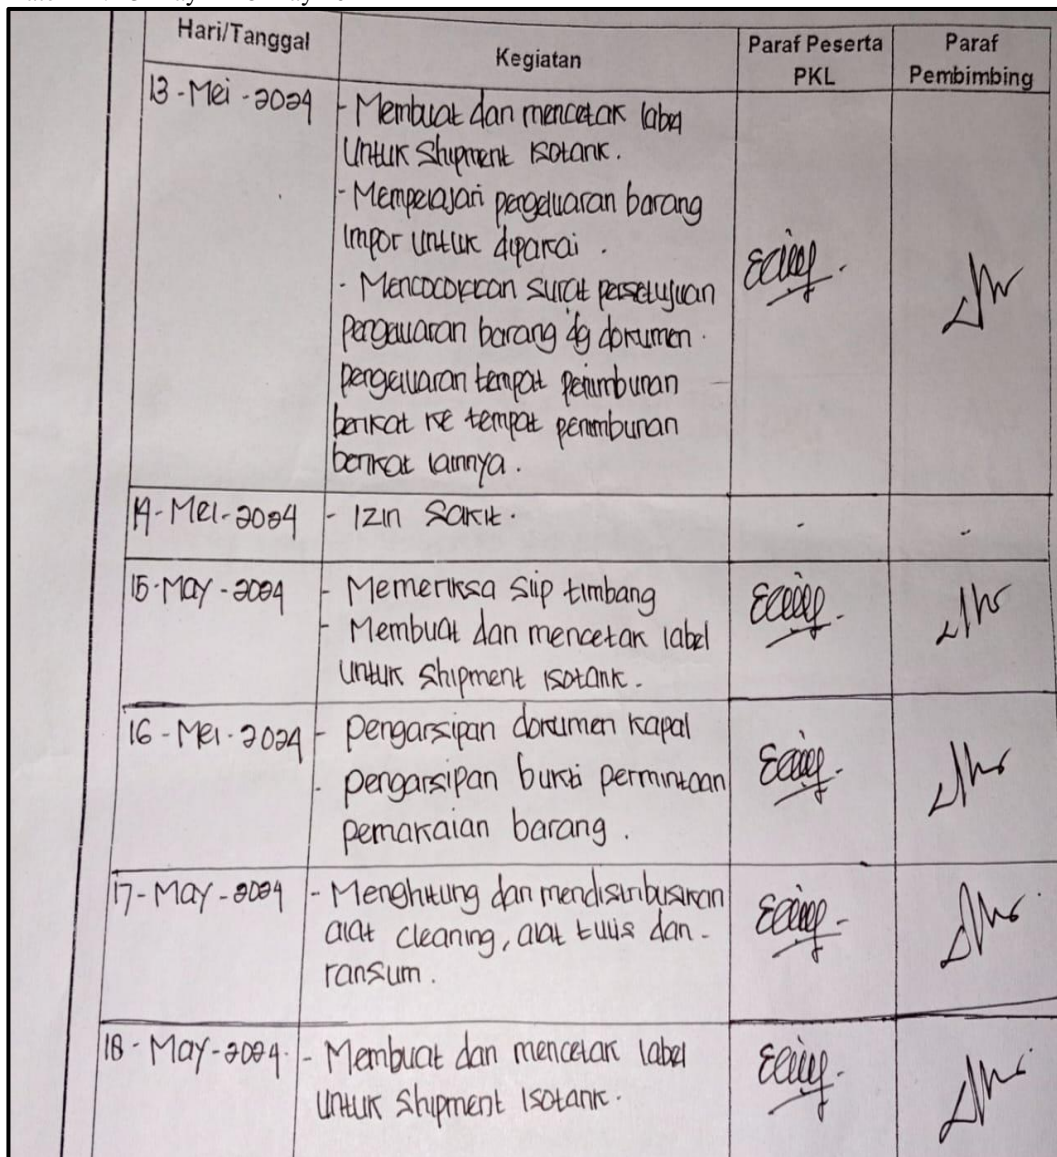 Hari/Tanggal
Kegiatan
Paraf Peserta
PKL
Paraf
Pembimbing
13-Mei-2024
- Membuat dan mencetak label
untuk Shipment Isotank.
- Mempelajari pengeluaran barang
impor untuk dipakai.
- Mencocokkan surat persetujuan
pengeluaran barang dg dokumen.
pengeluaran tempat penimbunan
berikat ke tempat penimbunan
berikat lainnya.
14-Mei-2024
- Izin Sakit.
-
-
15-May-2024
- Memeriksa Slip timbang
- Membuat dan mencetak label
untuk Shipment Isotank.
16-Mei-2024
- pengarsipan dokumen kapal
- pengarsipan bukti permintaan
pemakaian barang.
17-May-2024
- Menghitung dan mendistribusikan
alat cleaning, alat tulis dan-
ransum.
18-May-2024.
- Membuat dan mencetak label
untuk Shipment Isotank.